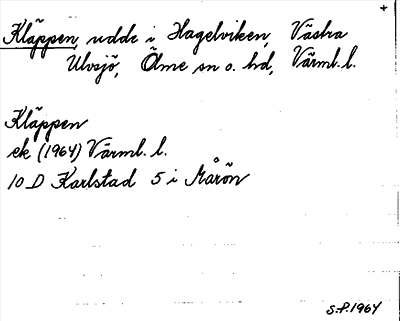 +
Kläppen, udde i Hagelviken, Västra
Ulvsjö, Ölme sn o. hd, Värml. l.
Kläppen
ek (1964) Värml. l.
10 D Karlstad 5 i Marön
S.P. 1964